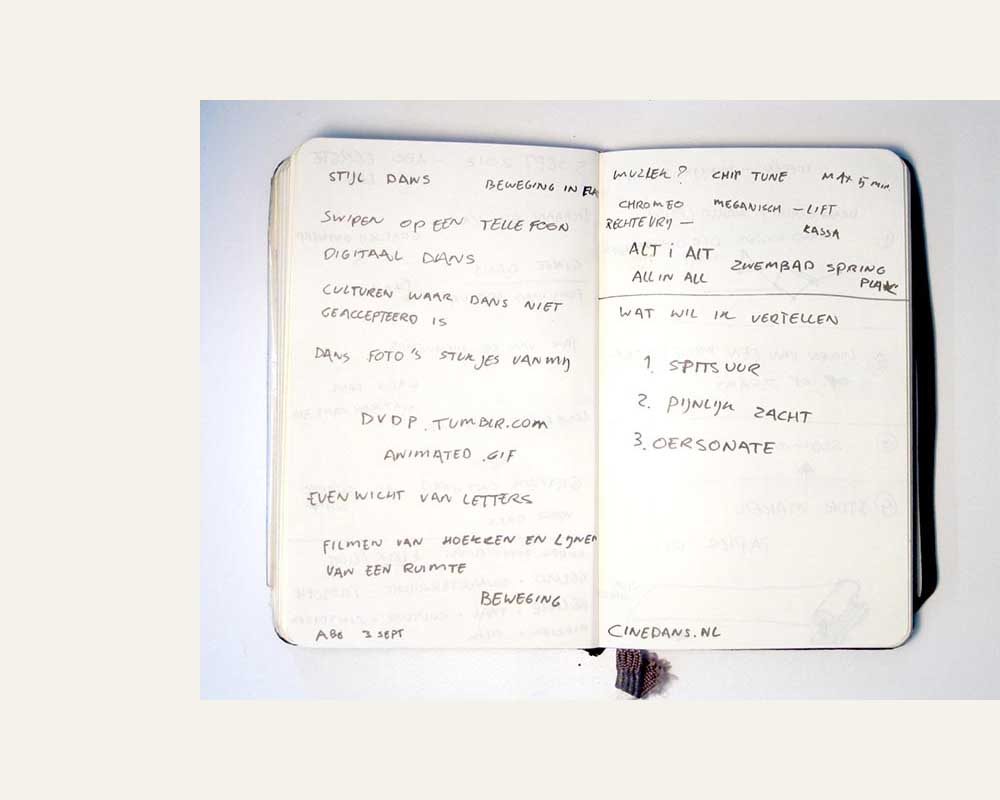 STIJL DANS
BEWEGING IN
SWIPEN OP EEN TELLEFOON
DIGITAAL DANS
CULTUREN WAAR DANS NIET
GEACCEPTEERD IS
DANS FOTO'S STUKJES VAN MIJ
DVDP.TUMBLR.COM
ANIMATED .GIF
EVENWICHT VAN LETTERS
FILMEN VAN HOEKKEN EN LIJNEN
VAN EEN RUIMTE
BEWEGING
3 SEPT
MUZIEK? CHIP TUNE MAX 5 min.
CHROMEO MEGANISCH – LIFT
RECHTEVRIJ –
KASSA
ALT i AlT
ALL IN ALL
ZWEMBAD SPRING
PLANK
WAT WIL IK VERTELLEN
1. SPITSUUR
2. PIJNLIJK ZACHT
3. OERSONATE
CINEDANS.NL